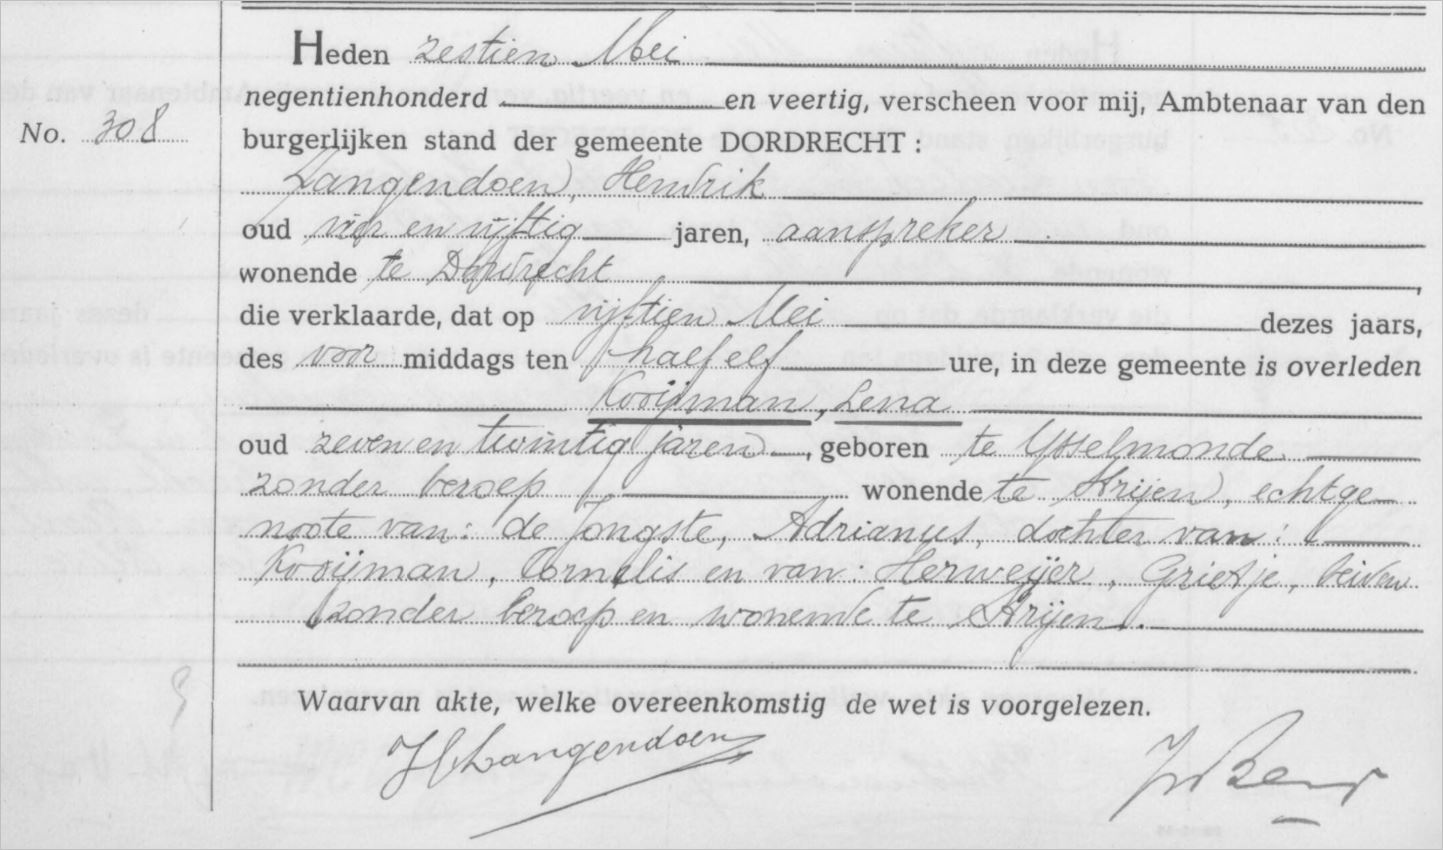 Heden zestien Mei
negentienhonderd en veertig, verscheen voor mij, Ambtenaar van den
No. 308
burgerlijken stand der gemeente DORDRECHT :
Langendoen, Hendrik
oud vier en vijftig jaren, aanspreker
wonende te Dordrecht ,
die verklaarde, dat op vijftien Mei dezes jaars,
des voor middags ten half elf ure, in deze gemeente is overleden
Kooijman, Lena
oud zeven en twintig jaren , geboren te IJsselmonde
zonder beroep wonende te Strijen, echtge-
noote van: de Jongste, Adrianus, dochter van:
Kooijman, Cornelis en van Herweijer, Grietje, beiden
zonder beroep en wonende te Strijen.
Waarvan akte, welke overeenkomstig de wet is voorgelezen.
HLangendoen